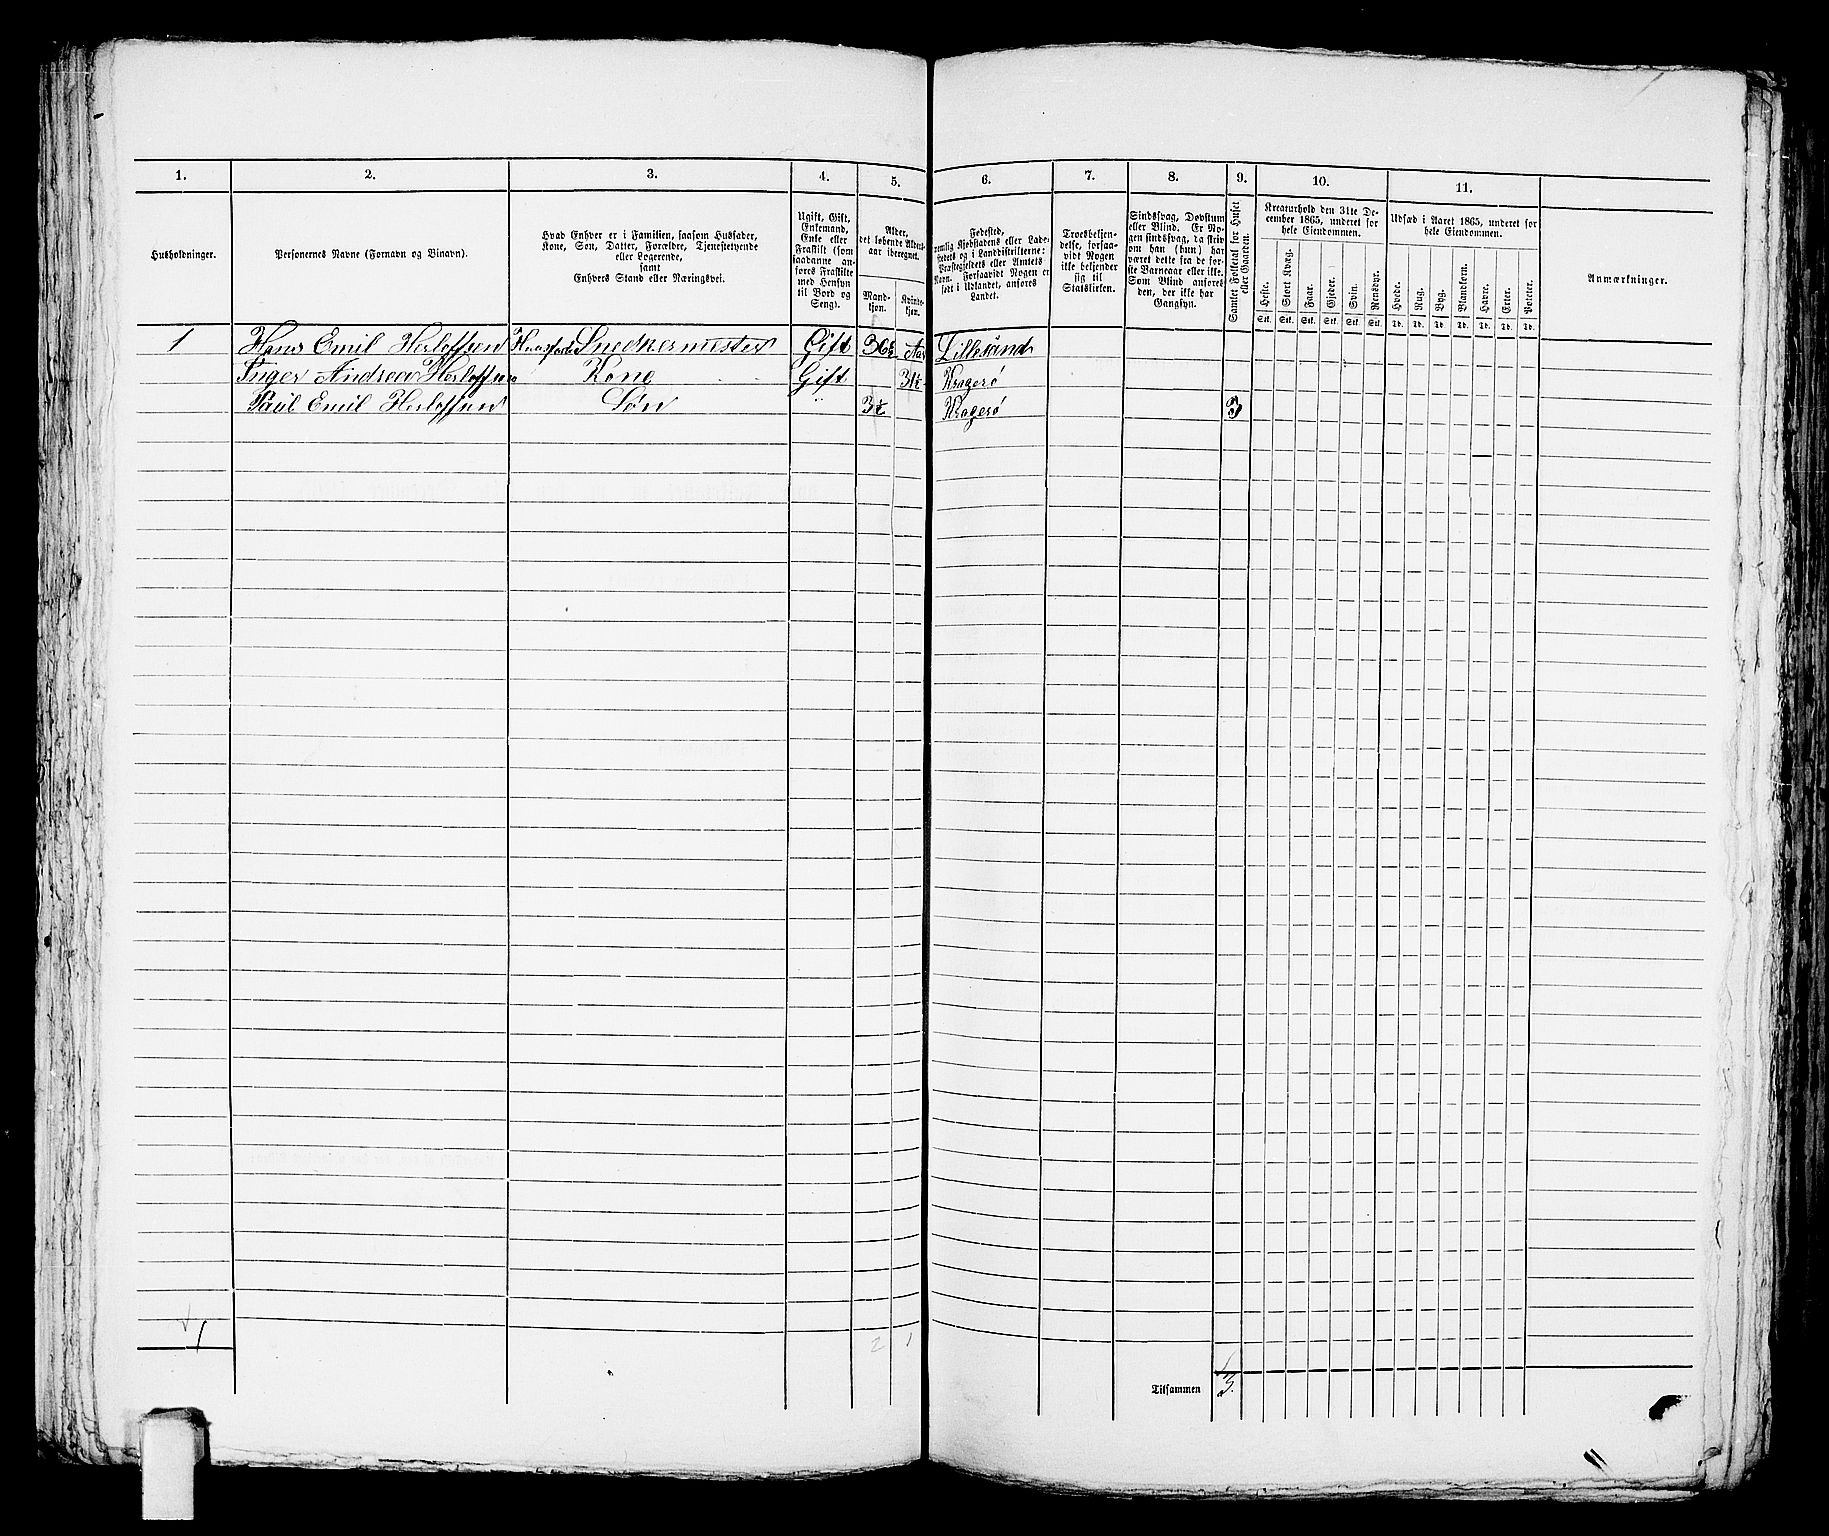 1. 2. 3. 4. 5. 6. 7. 8. 9. 10. 11.
Husholdninger.
Personernes Navne (Fornavn og Binavn).
Hvad Enhver er i Familien, saasom Husfader,
Kone, Søn, Datter, Forældre, Tjenestetyende
eller Logerende,
samt
Enhvers Stand eller Næringsvei.
Ugift, Gift,
Enkemand,
Enke eller
Fraskilt (som
saadanne an-
føres Fraskilte
med Hensyn
til Bord og
Seng).
Alder,
det løbende Alders-
aar iberegnet.
Mand-
kjøn.
Kvinde-
kjøn.
Fødested,
nemlig Kjøbstadens eller Lade-
stedets og i Landdistrikterne:
Præstegjeldets eller Amtets
Navn. Forsaavidt Nogen er
født i Udlandet, anføres
Landet.
Troesbekjen-
delse, forsaa-
vidt Nogen
ikke bekjender
sig til
Statskirken.
Sindssvag, Døvstum
eller Blind. Er No-
gen sindssvag, da skriv
om han (hun) har
været dette fra de før-
ste Barneaar eller ikke.
Som Blind anføres
den, der ikke har
Gangsyn.
Samlet Folketal for Huset
eller Gaarden.
Kreaturhold den 31te De-
cember 1865, underet for
hele Eiendommen.
Heste. Stort Kvæg. Faar. Gjeder. Svin. Rensdyr.
Stk. Stk. Stk. Stk. Stk. Stk.
Udsæd i Aaret 1865, underet for
hele Eiendommen.
Hvede. Rug. Byg. Blandkorn. Havre. Erter. Poteter.
Td. Td. Td. Td. Td. Td. Td.
Anmærkninger.
1 Hans Emil Herloffsen Huusfader Snedkermester Gift 36 Aar Lillesand
Inger Andrea Herloffsen Kone Gift 31 Kragerø
Paul Emil Herloffsen Søn " 3 Kragerø 3
1 2 1
Tilsammen 3.